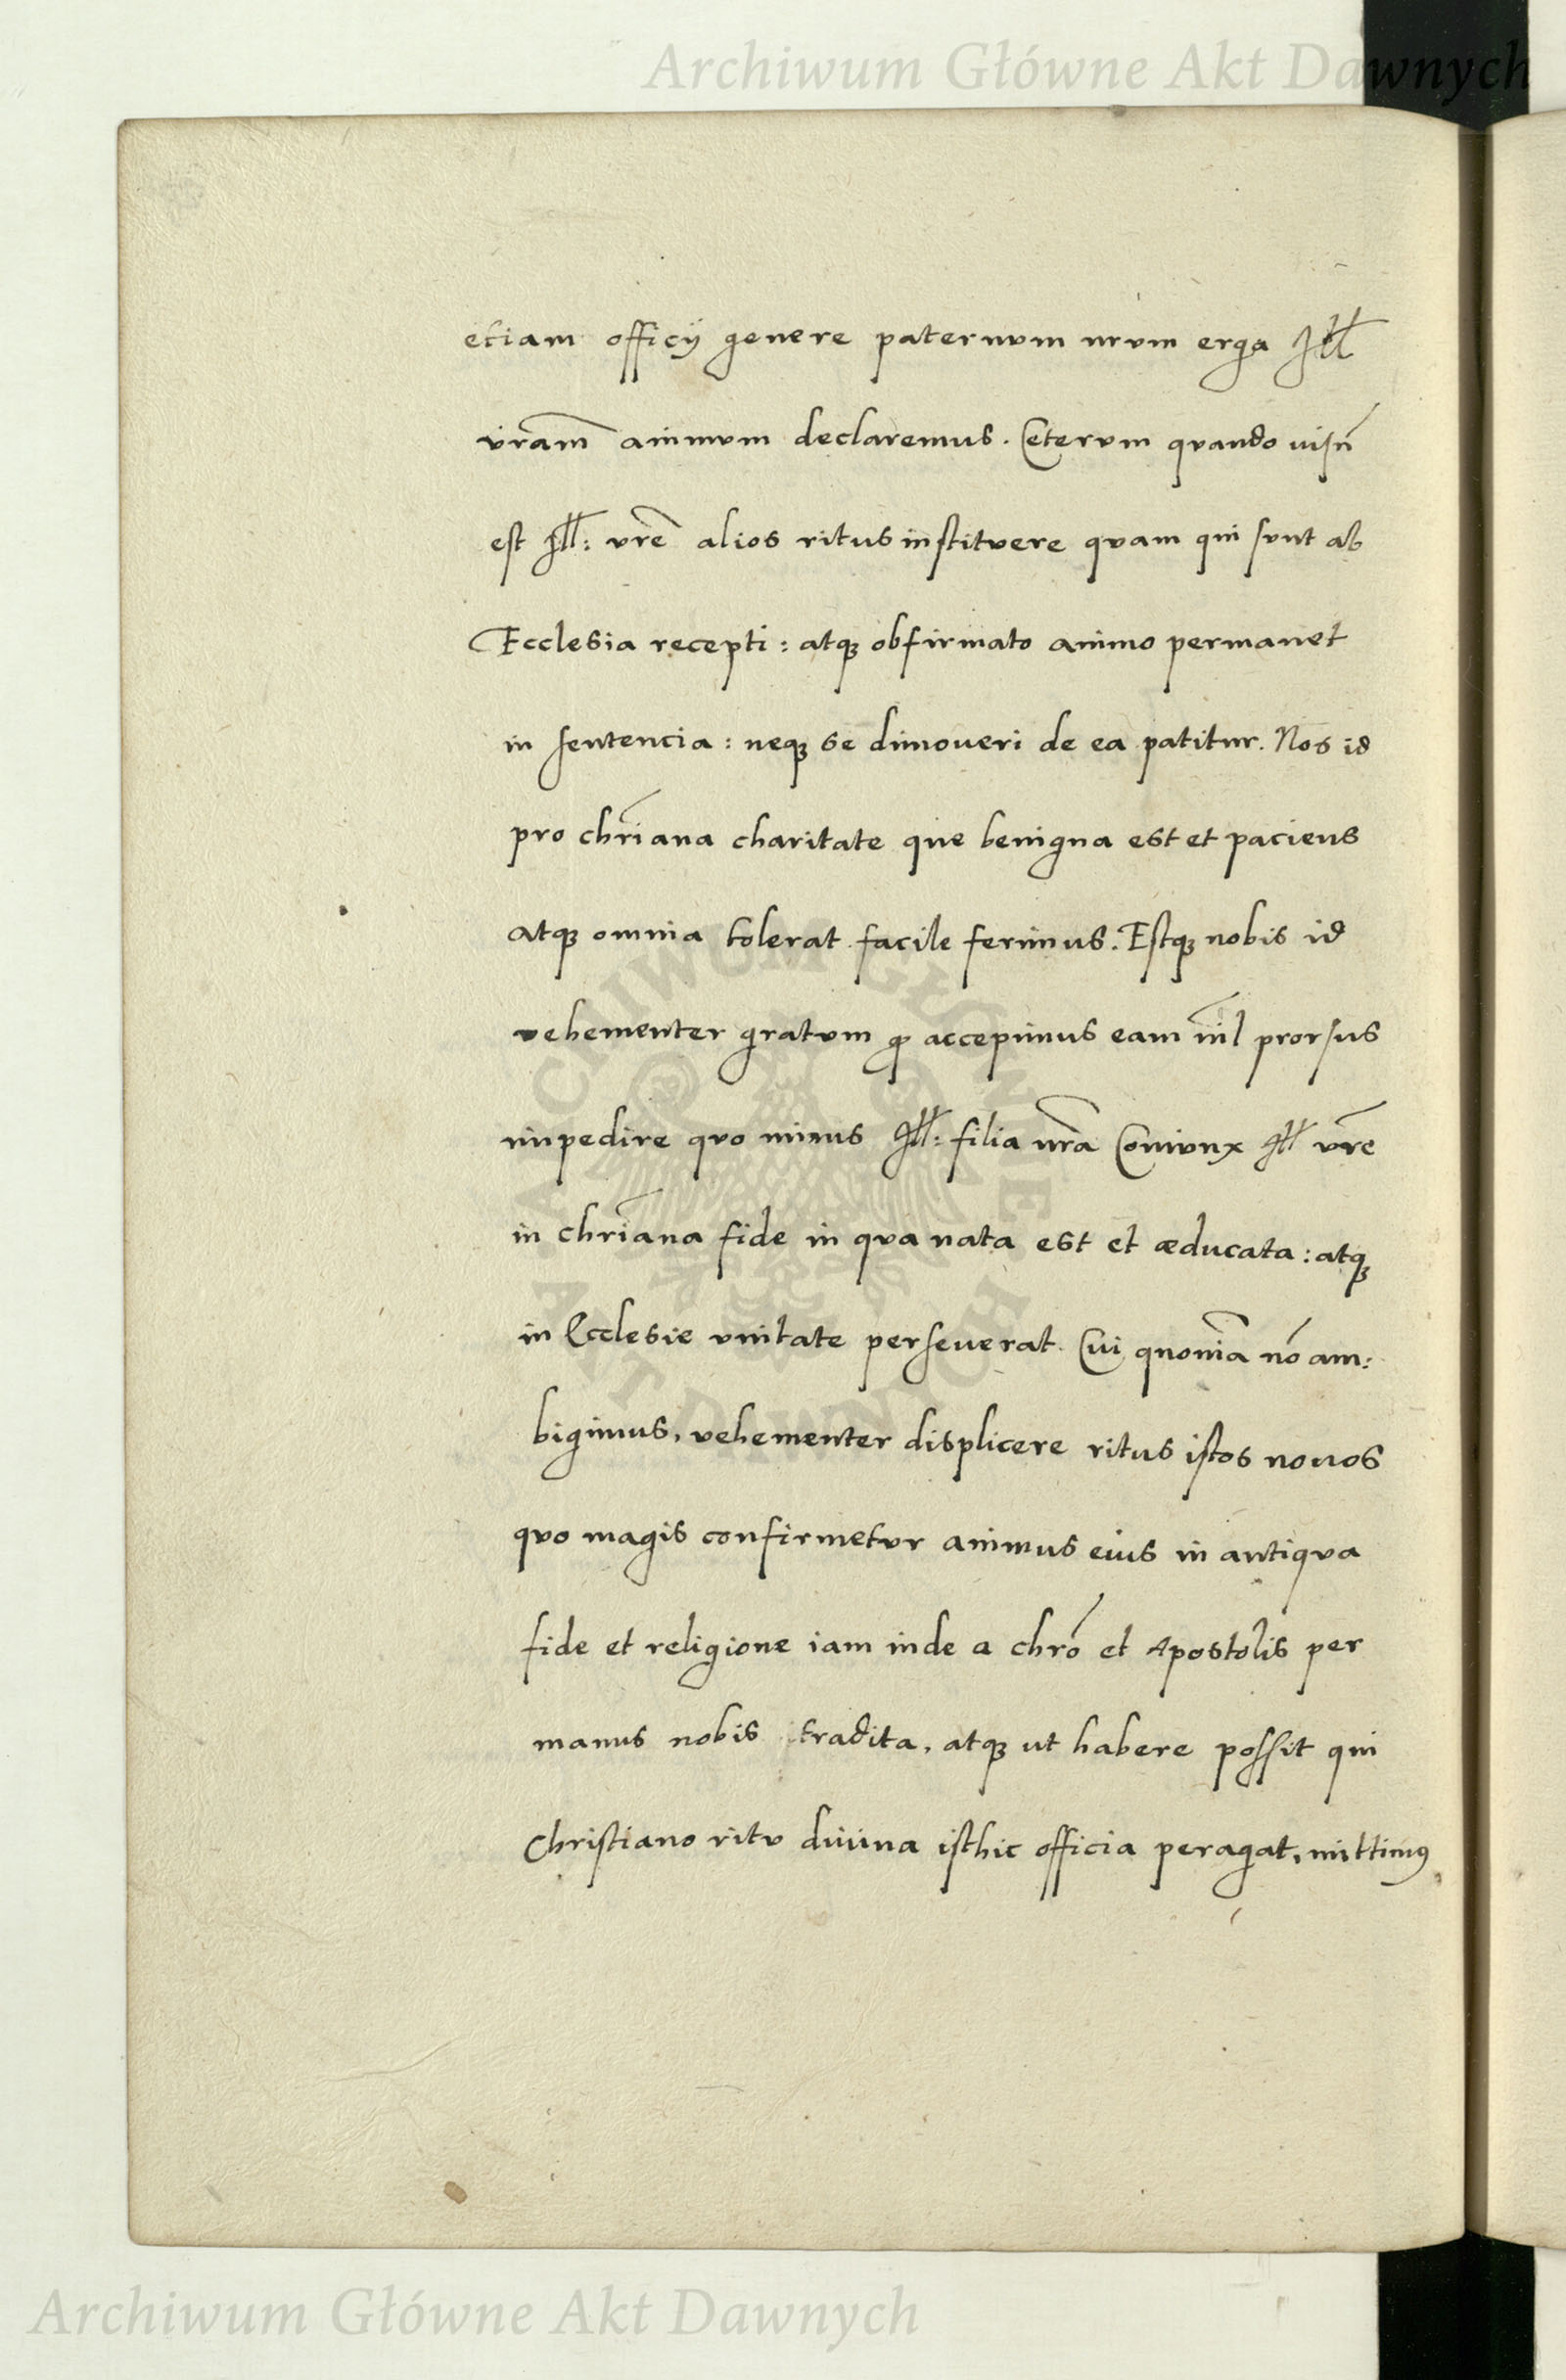 Archiwum Główne Akt Dawnych
etiam officij genere paternum nrum erga Ill
vram̃ animum declaremus. Ceterum quando uisũ
est Ill: vrẽ alios ritus instituere quam qui sunt ab
Ecclesia recepti: atq̃ obfirmato animo permanet
in sentencia: neq̃ se dimoueri de ea patitur. Nos id
pro chrĩana charitate que benigna est et paciens
atq̃ omnia tolerat facile ferimus. Estq̃ nobis id
vehementer gratum ꝙ accepimus eam nil̃ prorsus
impedire quo minus Ill: filia nrã Coniunx Ill vrẽ
in chrĩana fide in qua nata est et æducata: atq̃
in Ecclesie vnitate perseuerat. Cui quoniã nõ am:
bigimus, vehementer displicere ritus istos nouos
quo magis confirmetur animus eius in antiqua
fide et religione iam inde a chrõ et Apostolis per
manus nobis tradita, atq̃ ut habere possit qui
Christiano ritu diuina isthic officia peragat, mittimꝰ
ARCHIWUM GŁÓWNE AKT DAWNYCH
Archiwum Główne Akt Dawnych